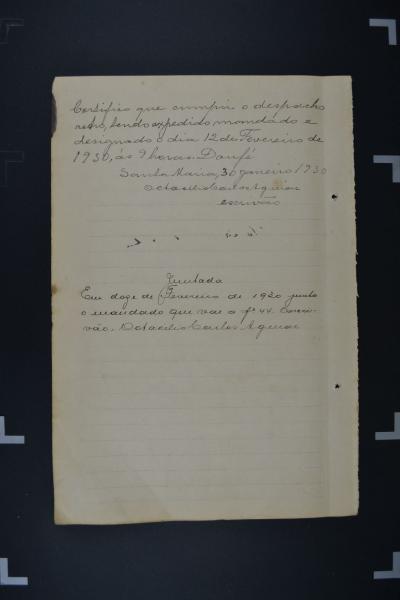 Certifico que cumpri o despacho
retro, tendo expedido mandado e
designado o dia 12 de Fevereiro de
1930, ás 9 horas. Dou fé
Santa Maria, 30 Janeiro 1930
Octacilio Carlos Aguiar
escrivão
Juntada
Em doze de Fevereiro de 1930 junto
o mandado que vae a fs 44. Escri-
vão. Octacilio Carlos Aguiar